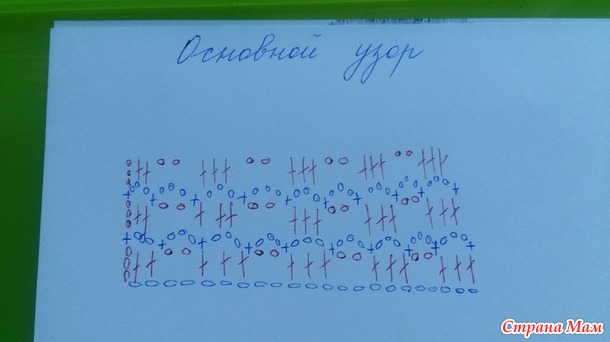 Основной узор
Страна Мам